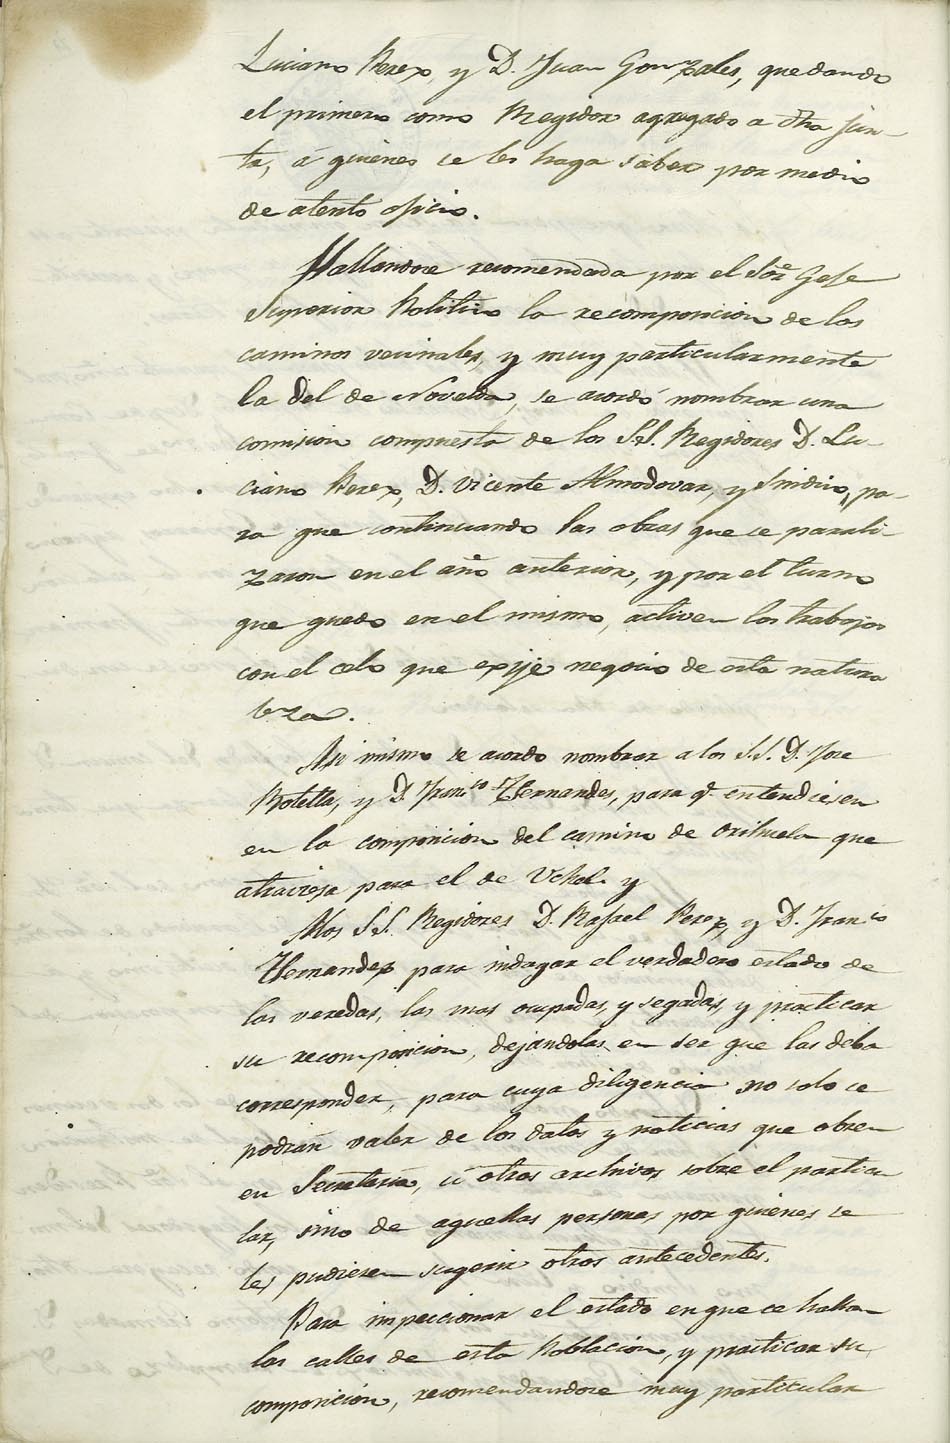 Luciano Perez, y D. Juan Gonzales, quedando
el primero como Regidor agregado a dha jun-
ta, á quienes se les haga saber por medio
de atento oficio.
Hallandose recomendada por el Sōr Gefe
Superior Politico la recomposicion de los
caminos vecinales, y muy particularmente
la del de Novelda, se acordó nombrar una
comision compuesta de los S.S. Regidores D. Lu-
ciano Perez, D. Vicente Almodovar, y Sindico, pa-
ra que continuando las obras que se parali-
zaron en el año anterior, y por el turno
que quedo en el mismo, activen los trabajos
con el celo que exije negocio de esta natura
leza.
Asi mismo se acordo nombrar a los S.S. D. Jose
Botella, y D. Franco Hernandes, para q. entendiesen
en la composicion del camino de Orihuela que
atraviesa para el de y
Alos S.S. Regidores D. Rafael Perez, y D. Franco
Hernandez para indagar el verdadero estado de
las veredas, las mas ocupadas, y segadas, y practicar
su recomposicion, dejandolas en ser que las deba
corresponder, para cuya diligencia no solo se
podrán valer de los datos y noticias que obren
en Secretaria, ú otros archivos sobre el particu
lar, sino de aquellas personas por quienes se
les pudiesen sugerir otros antecedentes.
Para inspeccionar el estado en que se hallan
las calles de esta Poblacion, y practicar su
composicion, recomendandose muy particular